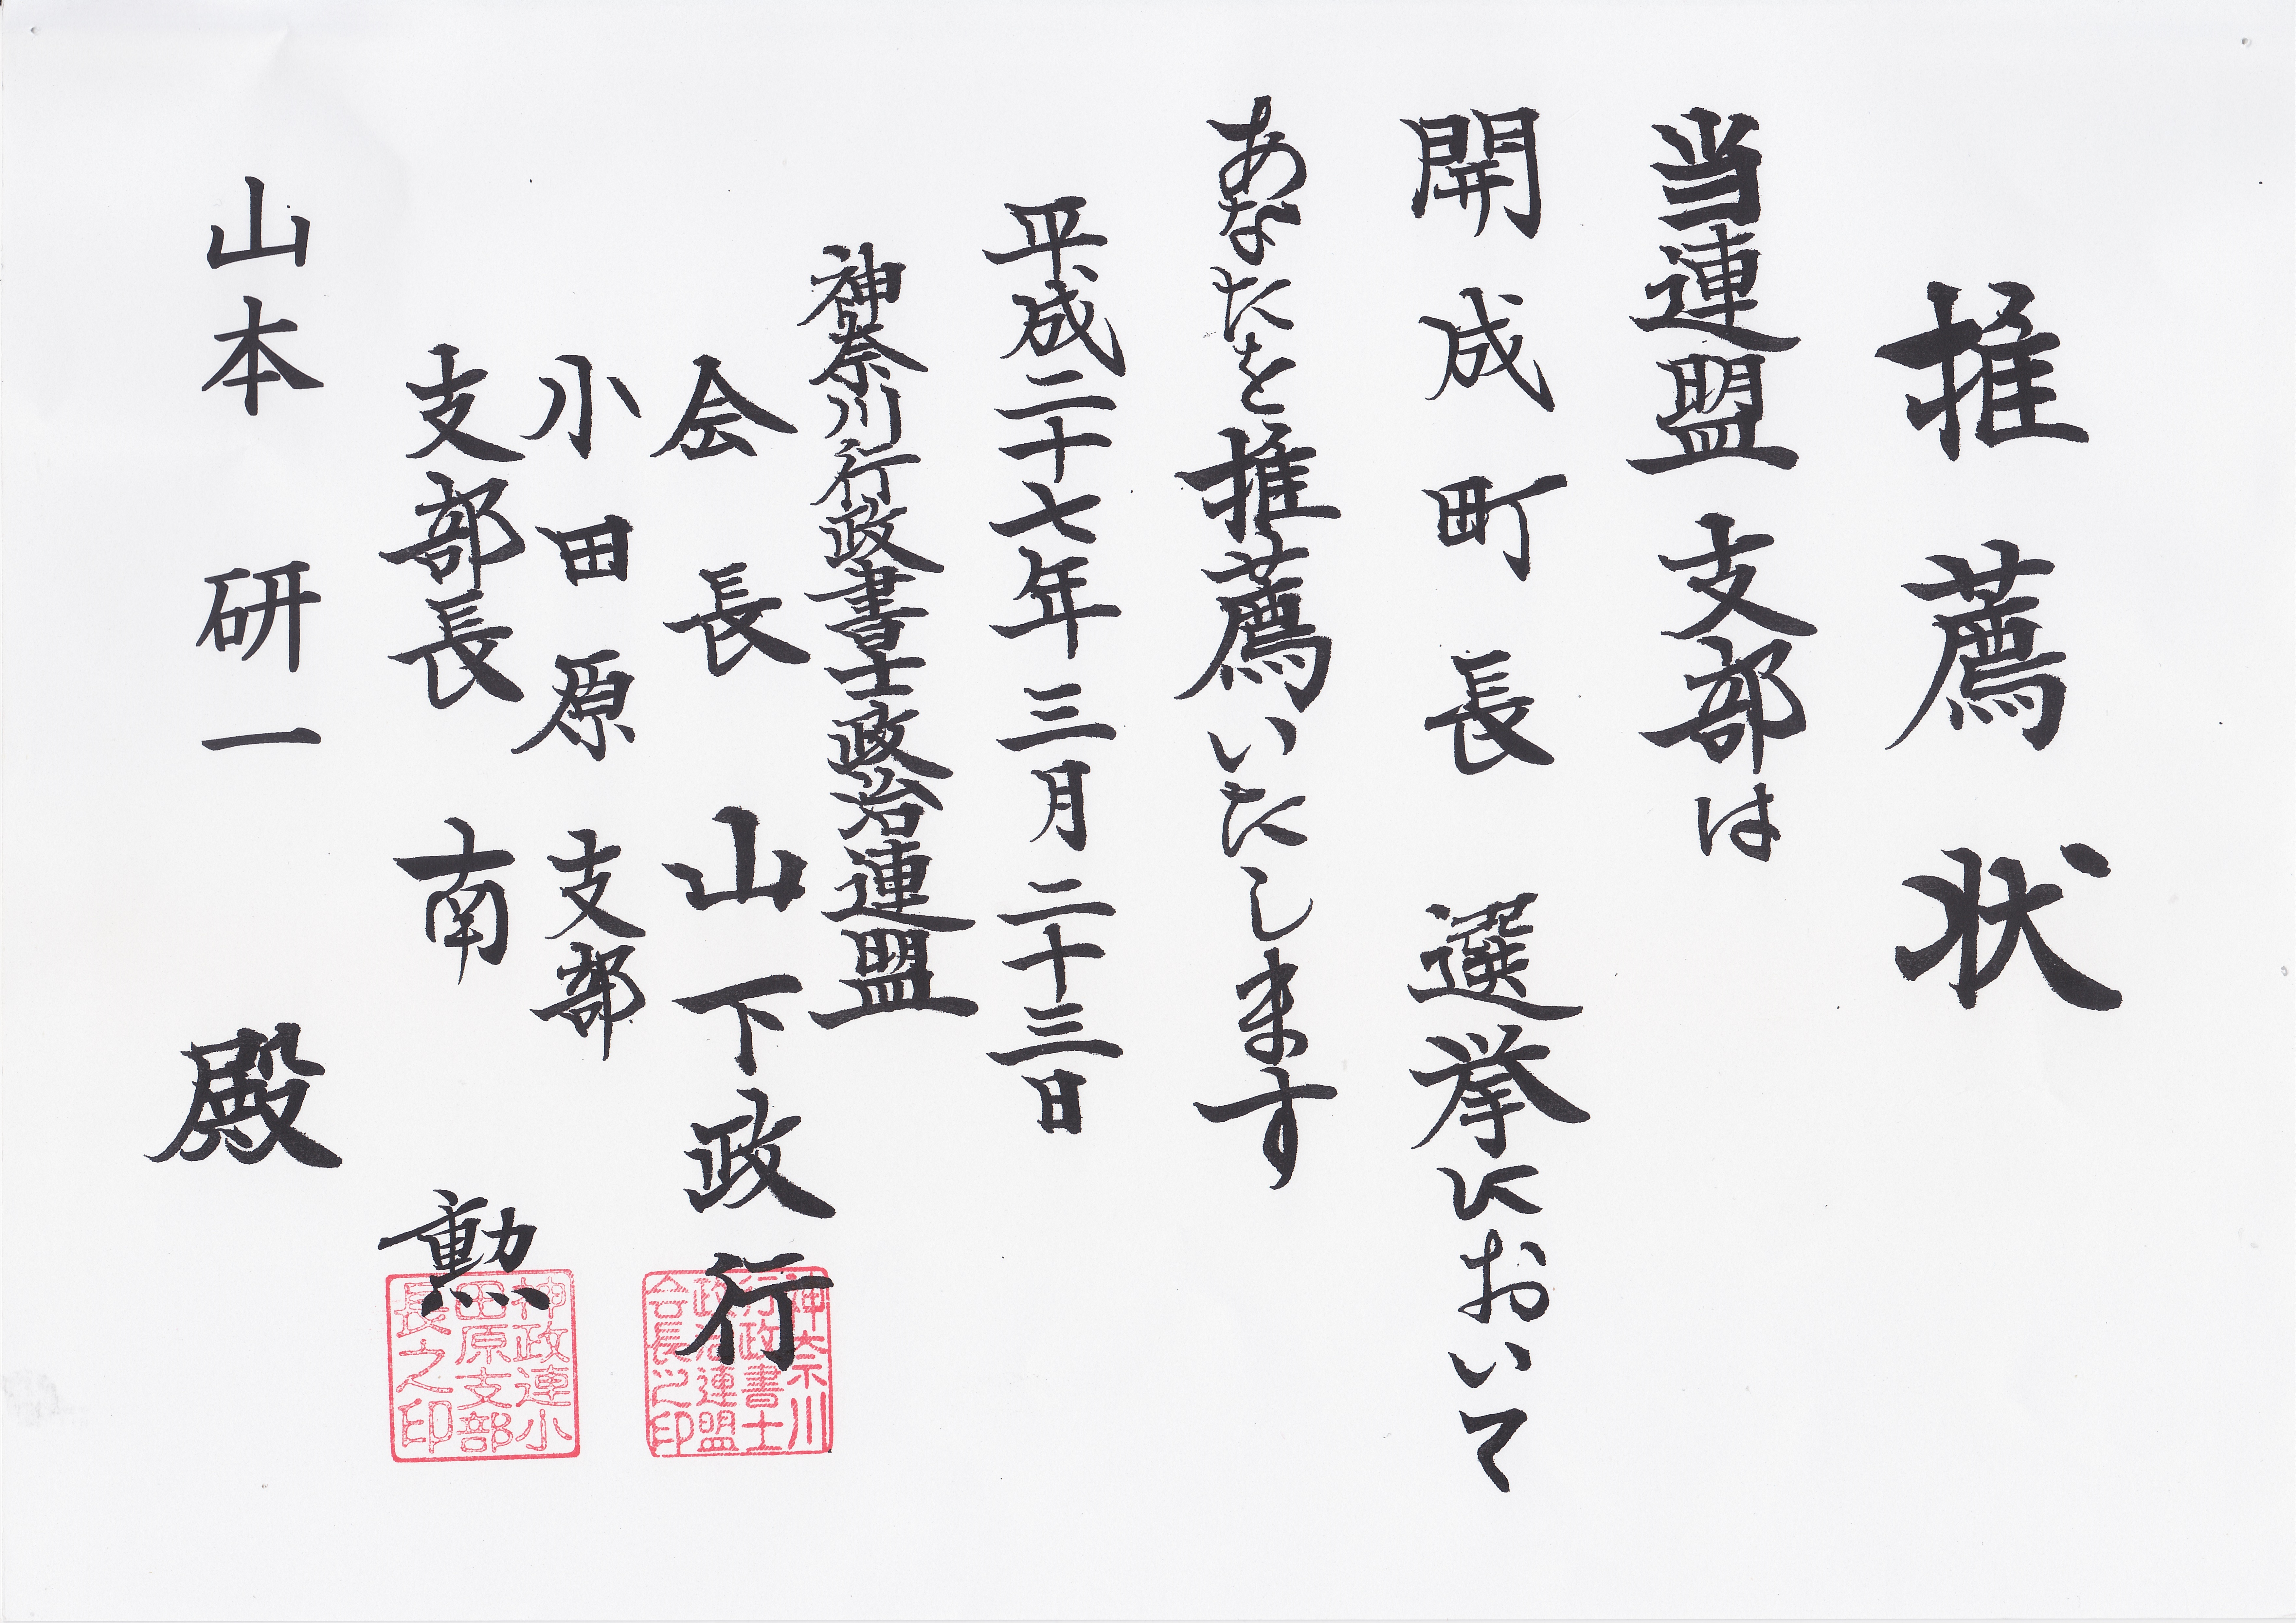 推薦状
当連盟支部は
開成町長 選挙において
あなたを推薦いたします
平成二十七年三月二十三日
神奈川行政書士政治連盟
会長 山下政行
小田原支部
支部長 南 勲
山本研一 殿
神奈川
行政書士
政治連盟
会長之印
神政連小
田原支部
長之印